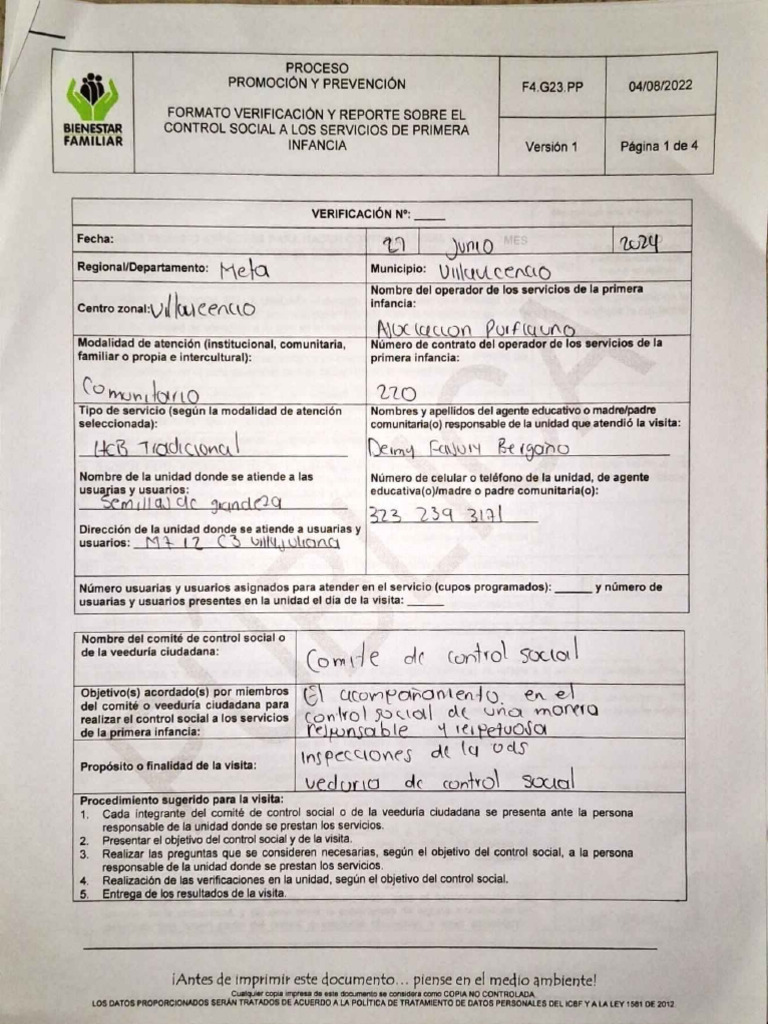 BIENESTAR
FAMILIAR
PROCESO
PROMOCIÓN Y PREVENCIÓN
FORMATO VERIFICACIÓN Y REPORTE SOBRE EL
CONTROL SOCIAL A LOS SERVICIOS DE PRIMERA
INFANCIA
F4.G23.PP
04/08/2022
Versión 1
Página 1 de 4
VERIFICACIÓN N°: _____
Fecha:
27
Junio
MES
2024
Regional/Departamento: Meta
Municipio: Villavicencio
Centro zonal: Villavicencio
Nombre del operador de los servicios de la primera
infancia:
Asociacion Porfiauno
Modalidad de atención (institucional, comunitaria,
familiar o propia e intercultural):
Comunitario
Número de contrato del operador de los servicios de la
primera infancia:
220
Tipo de servicio (según la modalidad de atención
seleccionada):
HCB Tradicional
Nombres y apellidos del agente educativo o madre/padre
comunitaria(o) responsable de la unidad que atendió la visita:
Deimy Bergaño
Nombre de la unidad donde se atiende a las
usuarias y usuarios:
Semillas de grandeza
Número de celular o teléfono de la unidad, de agente
educativa(o)/madre o padre comunitaria(o):
323 239 3171
Dirección de la unidad donde se atiende a usuarias y
usuarios: M7 12 C3 Villajuliana
Número usuarias y usuarios asignados para atender en el servicio (cupos programados): ______ y número de
usuarias y usuarios presentes en la unidad el día de la visita: ______
Nombre del comité de control social o
de la veeduría ciudadana:
Comite de control social
Objetivo(s) acordado(s) por miembros
del comité o veeduría ciudadana para
realizar el control social a los servicios
de la primera infancia:
El acompañamiento en el
control social de una manera
responsable y respetuosa
Propósito o finalidad de la visita:
inspecciones de la uds
veduria de control social
Procedimiento sugerido para la visita:
1. Cada integrante del comité de control social o de la veeduría ciudadana se presenta ante la persona
responsable de la unidad donde se prestan los servicios.
2. Presentar el objetivo del control social y de la visita.
3. Realizar las preguntas que se consideren necesarias, según el objetivo del control social, a la persona
responsable de la unidad donde se prestan los servicios.
4. Realización de las verificaciones en la unidad, según el objetivo del control social.
5. Entrega de los resultados de la visita.
PÚBLICA
¡Antes de imprimir este documento... piense en el medio ambiente!
Cualquier copia impresa de este documento se considera como COPIA NO CONTROLADA.
LOS DATOS PROPORCIONADOS SERÁN TRATADOS DE ACUERDO A LA POLÍTICA DE TRATAMIENTO DE DATOS PERSONALES DEL ICBF Y A LA LEY 1581 DE 2012